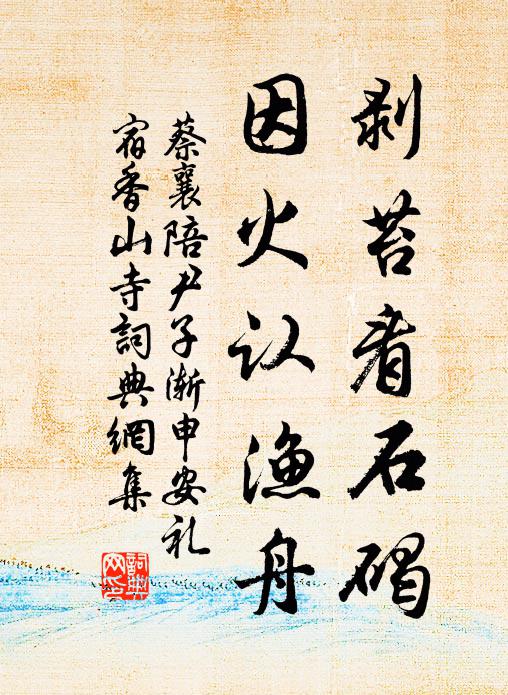 剥苔看石碣
因火认渔舟
蔡襄陪尹子渐申安礼
宿香山寺詞典網集
詞典